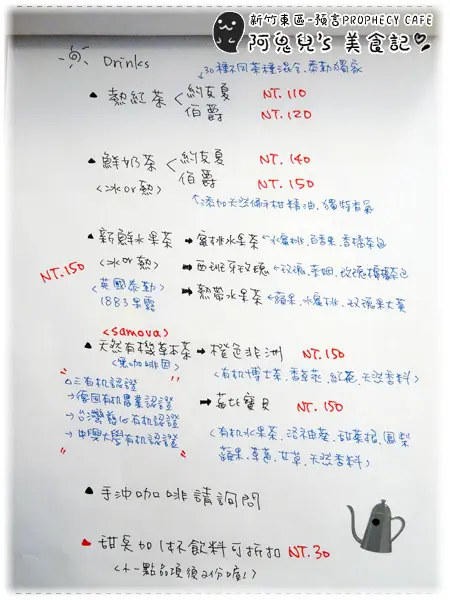 新竹東區-預言PROPHECY CAFE
阿鬼兒's 美食記
Drinks
30種不同茶種混合,泰勒獨家
▲ 熱紅茶 < 約克夏 NT.110
伯爵 NT.120
▲ 鮮奶茶 < 約克夏 NT.140
<冰or熱> 伯爵 NT.150
添加天然佛手柑精油,獨特香氣
▲ 新鮮水果茶 → 蜜桃水果茶 ← 水蜜桃、百香果、香橙茶包
<冰or熱> → 西班牙玫瑰 ← 玫瑰、茉莉、玫瑰檸檬茶包
NT.150 <英國泰勒> → 熱帶水果茶 ← 蘋果、水蜜桃、玫瑰果大黃
1883果露
<samova>
▲ 天然有機草本茶 → 橙色非洲 NT.150
<無咖啡因> (有机博士茶、香草莢、紅花、天然香料)
△三大有机認證 → 莓比寶貝 NT.150
→德國有机農業認證
→台灣慈心有机認證 (有机水果茶、洛神葵、甜菜根、鳳梨
→中興大學有机認證 蘋果、草莓、甘草、天然香料)
▲ 手沖咖啡請詢問
▲ 甜点加1杯飲料可折扣 NT.30
<十一點品項後2份喔!>